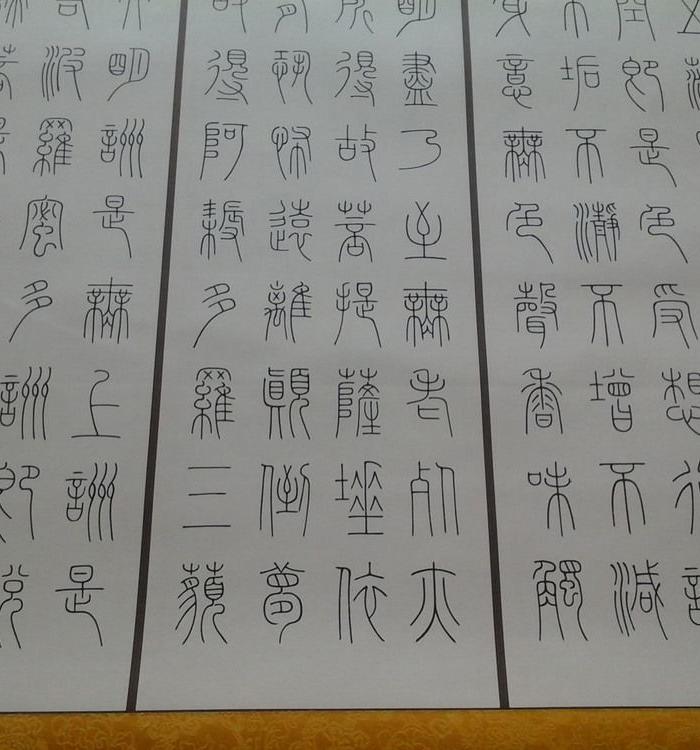 空即是色受想行識
不垢不瀞不增不減
身意無色聲香味觸
明盡乃至無老死亦
所得故菩提薩埵依
有恐怖遠離顛倒夢
故得阿耨多羅三藐
大明詶是無上詶是
若波羅蜜多詶即說